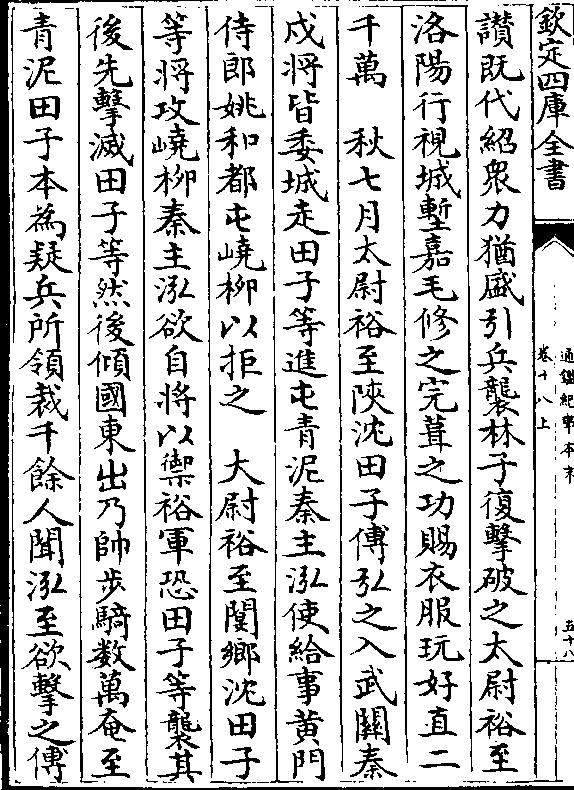 欽定四庫全書
通鑑紀事本末
卷十八上
五十八
讃既代紹衆力猶盛引兵襲林子復擊破之太尉裕至
洛陽行視城塹嘉毛修之完葺之功賜衣服玩好直二
千萬　秋七月太尉裕至陝沈田子傅弘之入武關秦
戍將皆委城走田子等進屯青泥秦主泓使給事黄門
侍郎姚和都屯嶢柳以拒之　大尉裕至閿鄉沈田子
等將攻嶢柳秦主泓欲自將以禦裕軍恐田子等襲其
後先擊滅田子等然後傾國東出乃帥步騎数萬奄至
青泥田子本為疑兵所領裁千餘人聞泓至欲擊之傅